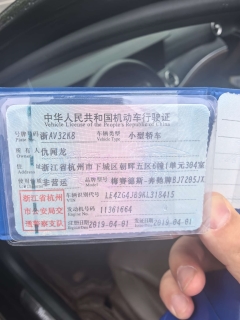 中华人民共和国机动车行驶证
Vehicle License of the People's Republic of China
号牌号码 浙AV3268 车辆类型 小型轿车
Plate No. Vehicle Type
所有人
Owner
住址 浙江省杭州市下城区朝晖五区6幢1单元304室
Address
使用性质 非营运 品牌型号 梅赛德斯-奔驰牌
Model
浙江省杭州市公安局交通警察支队
车辆识别代号
VIN
发动机号码
Engine No.
注册日期 2019-04-01 发证日期 2019-04-01